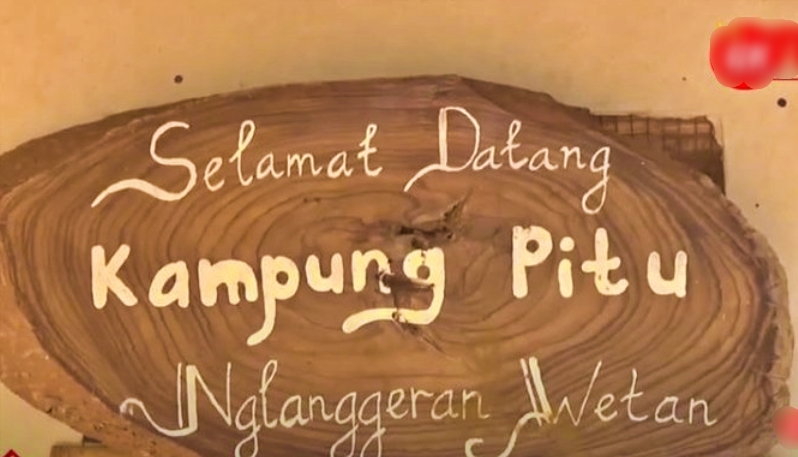 Selamat Datang
Kampung Pitu
Nglanggeran Wetan